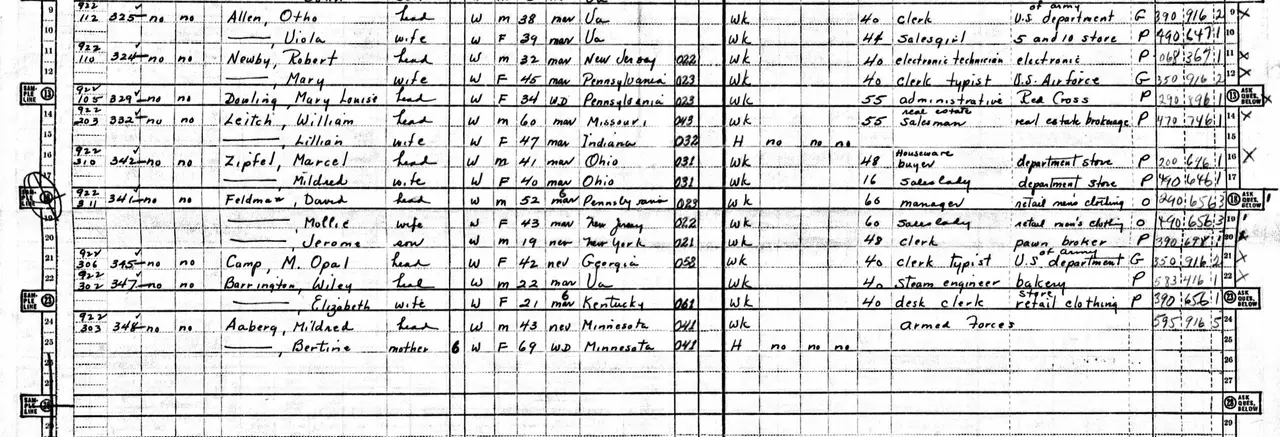 9 922 112 325 no no Allen, Otho head W m 38 mar Va Wk 40 clerk U.S. department of army G 390 916 2 9
10 Viola wife W F 39 mar Va Wk 44 salesgirl 5 and 10 store P 490 647 1 10
11 922 110 324 no no Newby, Robert head W m 32 mar New Jersey 022 Wk 40 electronic technician electronic P 068 367 1
12 Mary wife W F 45 mar Pennsylvania 023 Wk 40 clerk typist U.S. Airforce G 350 916 2 12
SAM-PLE LINE 13 922 105 329 no no Dowling, Mary Louise head W F 34 WD Pennsylvania 023 Wk 55 administrative Red Cross P 290 896 1 13 ASK QUES. BELOW
14 922 203 332 no no Leitch, William head W m 60 mar Missouri 043 Wk 55 real estate salesman real estate brokerage P 470 746 1 14
15 Lillian wife W F 47 mar Indiana 032 H no no no 15
16 922 310 342 no no Zipfel, Marcel head W m 41 mar Ohio 031 Wk 48 Houseware buyer department store P 200 646 1 16
17 Mildred wife W F 40 mar Ohio 031 Wk 16 saleslady department store P 490 646 1 17
SAM-PLE LINE 18 922 311 341 no no Feldman, David head W m 52 mar 6 Pennsylvania 023 Wk 60 manager retail men's clothing O 290 656 3 18 ASK QUES. BELOW
19 Mollie wife W F 43 mar New Jersey 022 Wk 60 saleslady retail men's clothing O 490 656 3 19
20 Jerome son W m 19 nev New York 021 Wk 48 clerk pawn broker P 390 698 1 20
21 922 306 345 no no Camp, M. Opal head W F 42 nev Georgia 058 Wk 40 clerk typist U.S. department of army G 350 916 2 21
22 922 302 347 no no Barrington, Wiley head W m 22 mar Va Wk 40 steam engineer bakery P 583 416 1 22
SAM-PLE LINE 23 Elizabeth wife W F 21 mar 6 Kentucky 061 Wk 40 desk clerk retail clothing store P 390 656 1 23 ASK QUES. BELOW
24 922 303 348 no no Aaberg, Mildred head W m 43 nev Minnesota 041 Wk Armed Forces 595 916 5 24
25 Bertine mother 6 W F 69 WD Minnesota 041 H no no no 25
26 26
27 27
SAM-PLE LINE 28 28 ASK QUES. BELOW
29 29